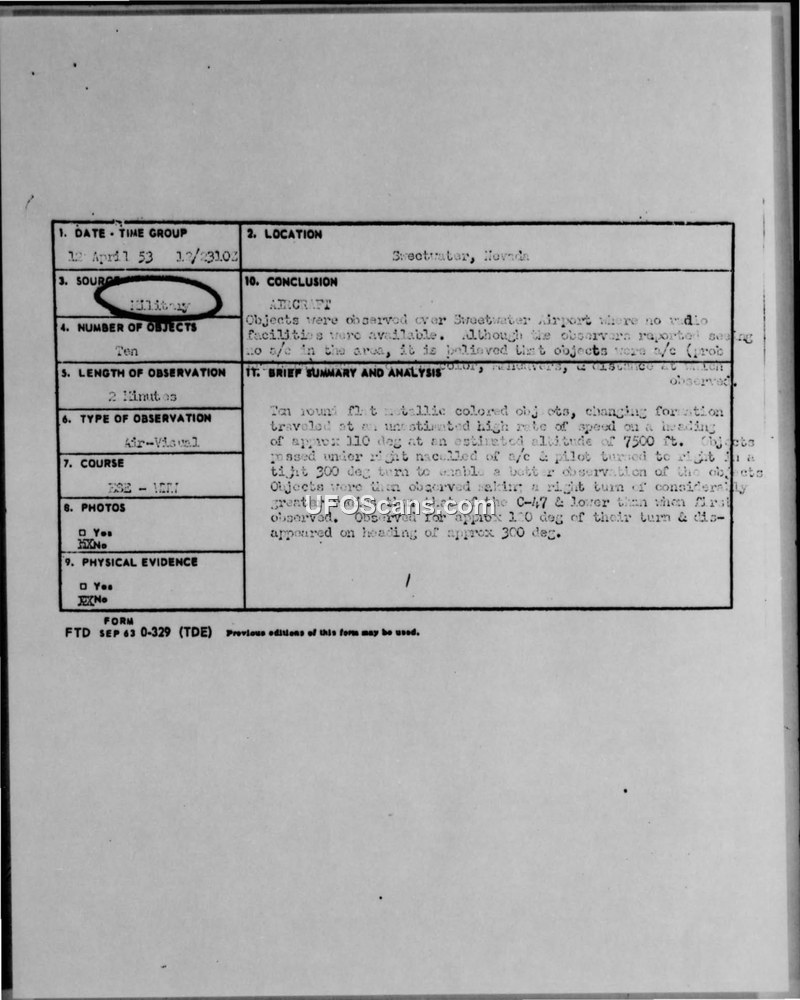 1. DATE - TIME GROUP
12 April 53 12/2310Z
2. LOCATION
Sweetwater, Nevada
3. SOURCE
Military
10. CONCLUSION
AIRCRAFT
Objects were observed over Sweetwater Airport where no radio
facilities were available. Although the observers reported seeing
no a/c in the area, it is believed that objects were a/c (prob
color, maneuvers, & distance at which
observed.
4. NUMBER OF OBJECTS
Ten
5. LENGTH OF OBSERVATION
2 Minutes
11. BRIEF SUMMARY AND ANALYSIS
Ten round flat metallic colored objects, changing formation
traveled at an unestimated high rate of speed on a heading
of approx 110 deg at an estimated altitude of 7500 ft. Objects
passed under right nacelled of a/c & pilot turned to right in a
tight 300 deg turn to enable a better observation of the objects
Objects were then observed making a right turn of considerably
the C-47 & lower than when first
observed. Observed for approx deg of their turn & dis-
appeared on heading of approx 300 deg.
6. TYPE OF OBSERVATION
Air-Visual
7. COURSE
ESE -
8. PHOTOS
□ Yes
XXNo
9. PHYSICAL EVIDENCE
□ Yes
XXNo
FORM
FTD SEP 63 0-329 (TDE) Previous editions of this form may be used.
UFOScans.com